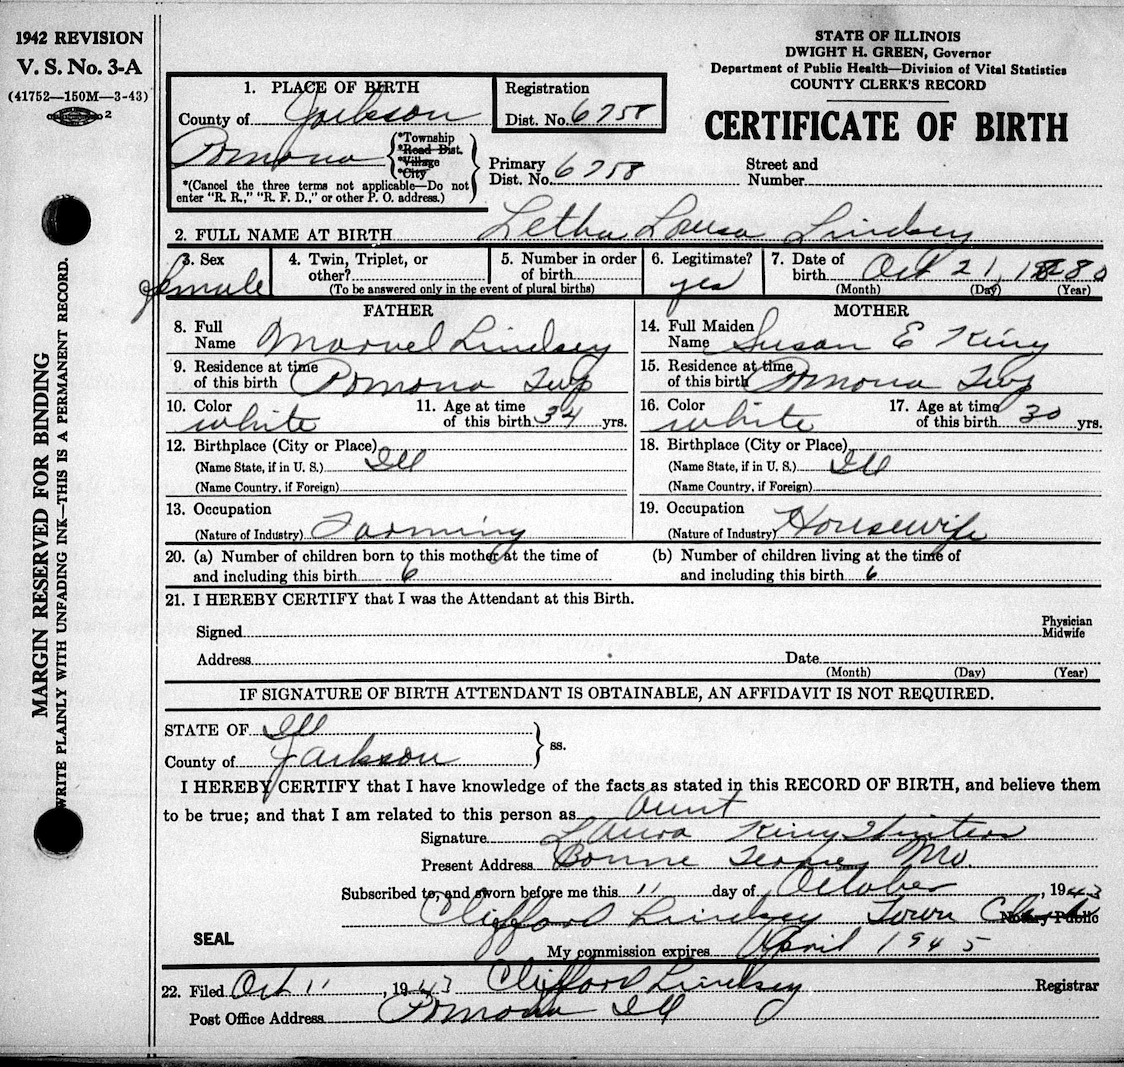 1942 REVISION
V. S. No. 3-A
(41752—150M—3-43)
2
STATE OF ILLINOIS
DWIGHT H. GREEN, Governor
Department of Public Health—Division of Vital Statistics
COUNTY CLERK'S RECORD
CERTIFICATE OF BIRTH
1. PLACE OF BIRTH
County of Jackson
Pomona
*Township
*Road Dist.
*Village
*City
*(Cancel the three terms not applicable—Do not
enter "R. R.," "R. F. D.," or other P. O. address.)
Registration
Dist. No. 6758
Primary
Dist. No. 6758
Street and
Number
2. FULL NAME AT BIRTH Letha Lousa Lindsey
3. Sex
female
4. Twin, Triplet, or
other?
5. Number in order
of birth
(To be answered only in the event of plural births)
6. Legitimate?
yes
7. Date of
birth Oct 21, 1880
(Month) (Day) (Year)
FATHER
8. Full
Name Marvel Lindsey
9. Residence at time
of this birth Pomona Twp
10. Color
white
11. Age at time
of this birth 34 yrs.
12. Birthplace (City or Place)
(Name State, if in U. S.) Ill
(Name Country, if Foreign)
13. Occupation
(Nature of Industry) Farming
MOTHER
14. Full Maiden
Name Susan E King
15. Residence at time
of this birth Pomona Twp
16. Color
white
17. Age at time
of this birth 30 yrs.
18. Birthplace (City or Place)
(Name State, if in U. S.) Ill
(Name Country, if Foreign)
19. Occupation
(Nature of Industry) Housewife
20. (a) Number of children born to this mother at the time of
and including this birth 6
(b) Number of children living at the time of
and including this birth 6
21. I HEREBY CERTIFY that I was the Attendant at this Birth.
Signed
Physician
Midwife
Address Date
(Month) (Day) (Year)
IF SIGNATURE OF BIRTH ATTENDANT IS OBTAINABLE, AN AFFIDAVIT IS NOT REQUIRED.
STATE OF Ill
County of Jackson
ss.
I HEREBY CERTIFY that I have knowledge of the facts as stated in this RECORD OF BIRTH, and believe them
to be true; and that I am related to this person as Aunt
Signature Laura King
Present Address Bonne Terre, Mo.
Subscribed to, and sworn before me this 11 day of October, 1943
Clifford Lindsey Town Clerk Notary Public
SEAL
My commission expires April 1945
22. Filed Oct 11, 1943 Clifford Lindsey Registrar
Post Office Address Pomona Ill
MARGIN RESERVED FOR BINDING
WRITE PLAINLY WITH UNFADING INK—THIS IS A PERMANENT RECORD.